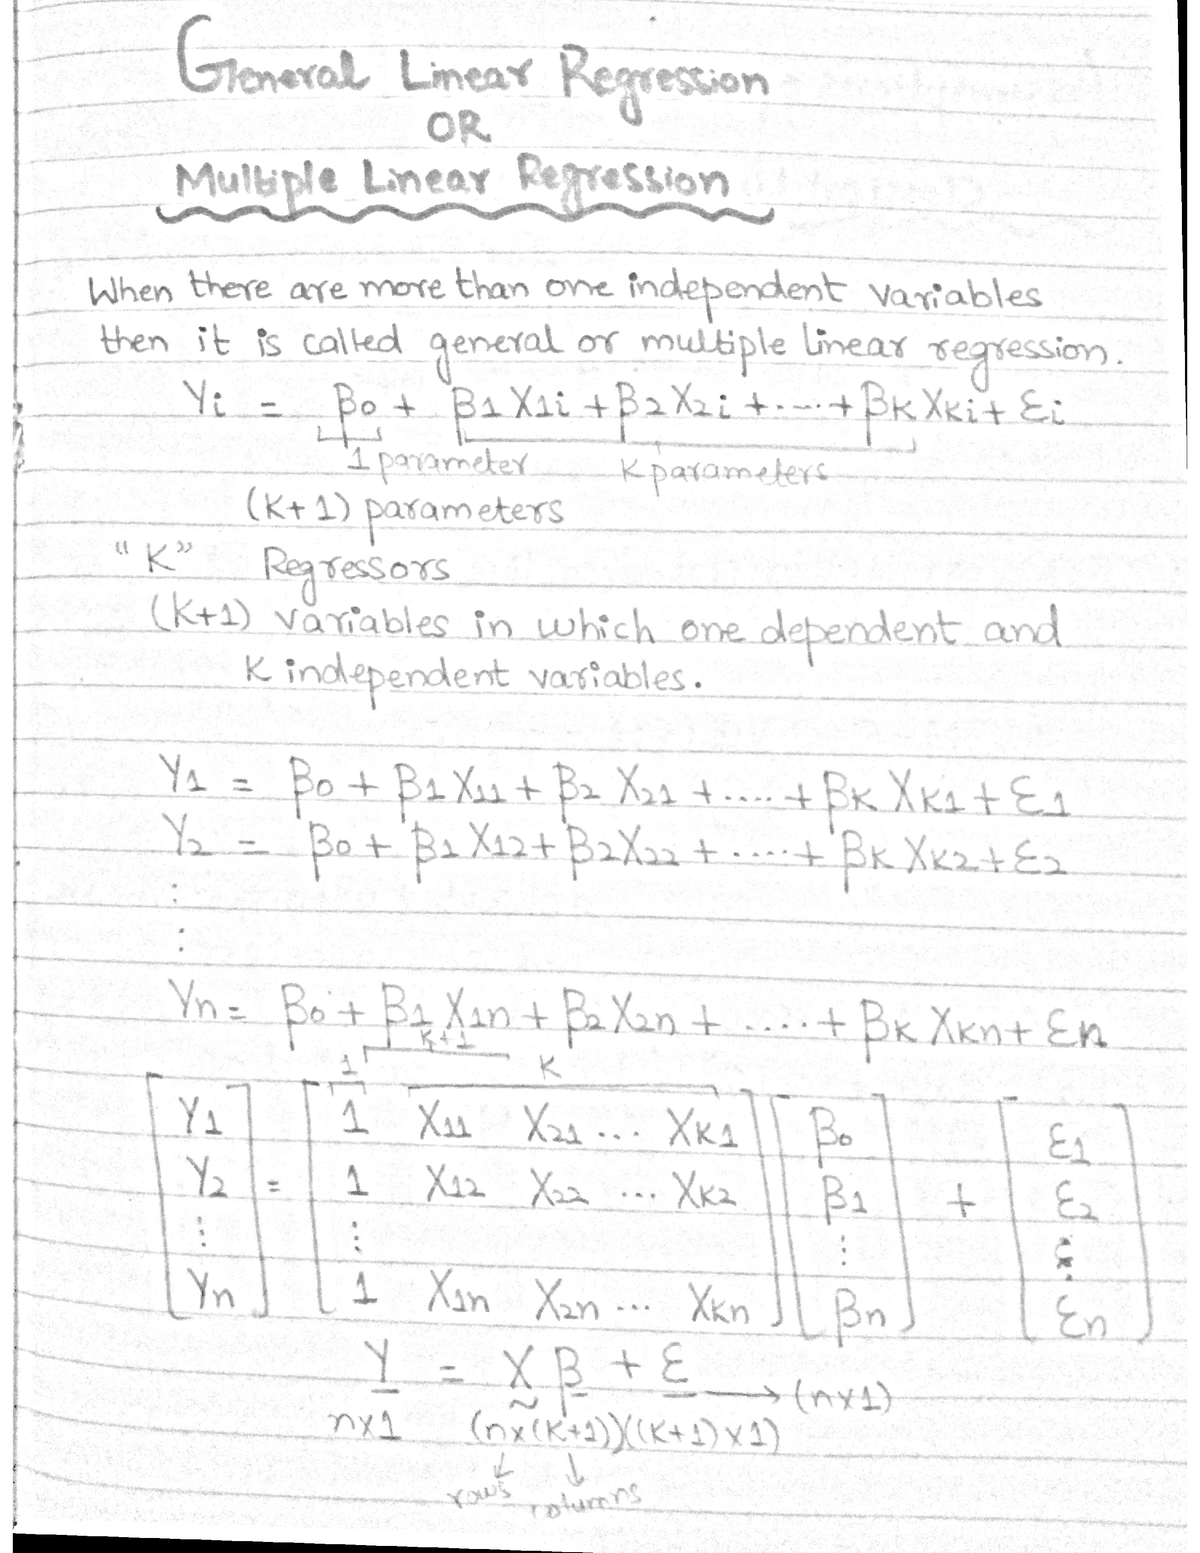 General Linear Regression
OR
Multiple Linear Regression
When there are more than one independent variables
then it is called general or multiple linear regression.
Yi = β0 + β1 X1i + β2 X2i + ..... + βK XKi + Ɛi
1 parameter K parameters
(K+1) parameters
"K" Regressors
(K+1) variables in which one dependent and
K independent variables.
Y1 = β0 + β1 X11 + β2 X21 + ..... + βK XK1 + Ɛ1
Y2 = β0 + β1 X12 + β2 X22 + ..... + βK XK2 + Ɛ2
:
:
Yn = β0 + β1 X1n + β2 X2n + ..... + βK XKn + Ɛn
K+1
1 K
[Y1] = [1 X11 X21 ... XK1] [β0] + [Ɛ1]
[Y2] [1 X12 X22 ... XK2] [β1] [Ɛ2]
⋮ ⋮ ⋮ ⋮
[Yn] [1 X1n X2n ... XKn] [βn] [Ɛn]
Y = X β + Ɛ → (n×1)
n×1 (n×(K+1))((K+1)×1)
rows columns